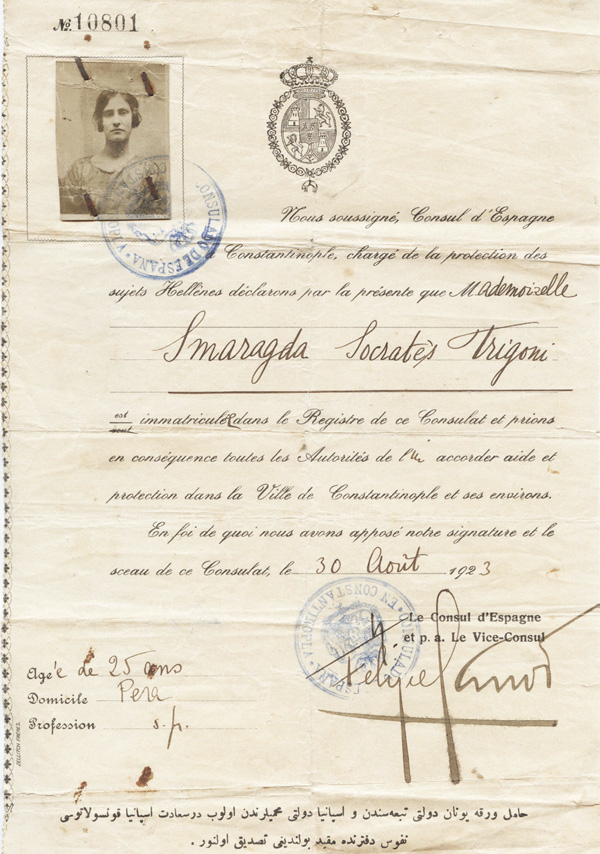 No. 10801
CONSULADO DE ESPAÑA
Nous soussigné, Consul d'Espagne
Constantinople, chargé de la protection des
sujets Hellènes déclarons par la présente que Mademoizelle
Smaragda Socratès Trigoni
est
sont immatriculée dans le Registre de ce Consulat et prions
en conséquence toutes les Autorités de l' accorder aide et
protection dans la Ville de Constantinople et ses environs.
En foi de quoi nous avons apposé notre signature et le
sceau de ce Consulat, le 30 Août 1923
CONSULADO ESPAÑA EN CONSTANTINOPLA
Le Consul d'Espagne
et p. a. Le Vice-Consul
Agée de 25 ans
Domicile Pera
Profession s. p.
ZELLITCH FRÈRES.
حامل ورقه یونان دولتی تبعه‌سندن و اسپانیا دولتی محمیلرندن اولوب درسعادت اسپانیا قونسولاتوسی
نفوس دفترنده مقید بولندیغی تصدیق اولنور .